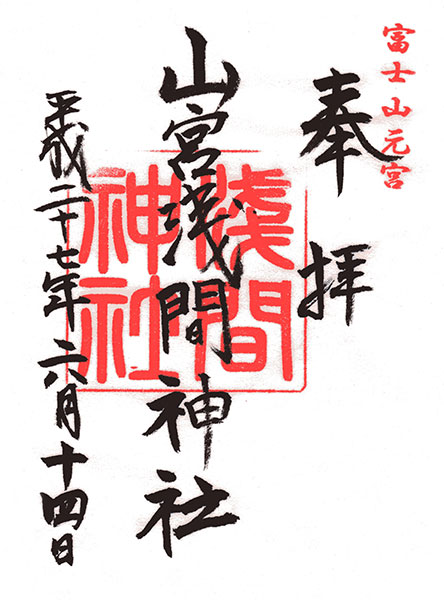 富士山元宮
奉拝
山宮浅間神社
淺間
神社
平成二十七年六月十四日